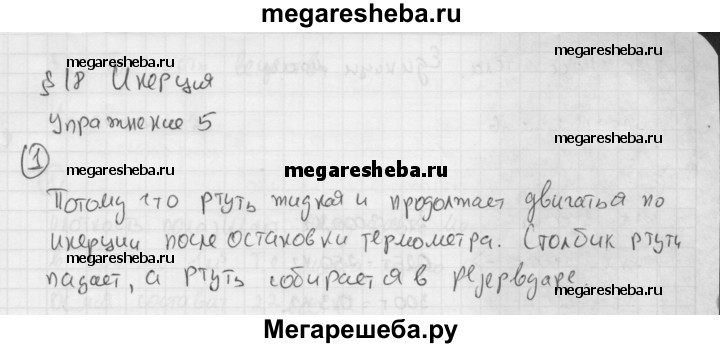 megaresheba.ru
megaresheba.ru megaresheba.ru
§ 18 Инерция
Упражнение 5
megaresheba.ru megaresheba.ru
1
megaresheba.ru
Потому что ртуть жидкая и продолжает двигаться по
инерции после остановки термометра. Столбик ртути
падает, а ртуть собирается в резервуаре.
megaresheba.ru megaresheba.ru
Мегарешеба.ру